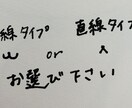 線タイプ 直線タイプ
ω or 人
お選び下さい